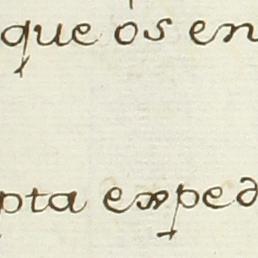 que os en
pta exped